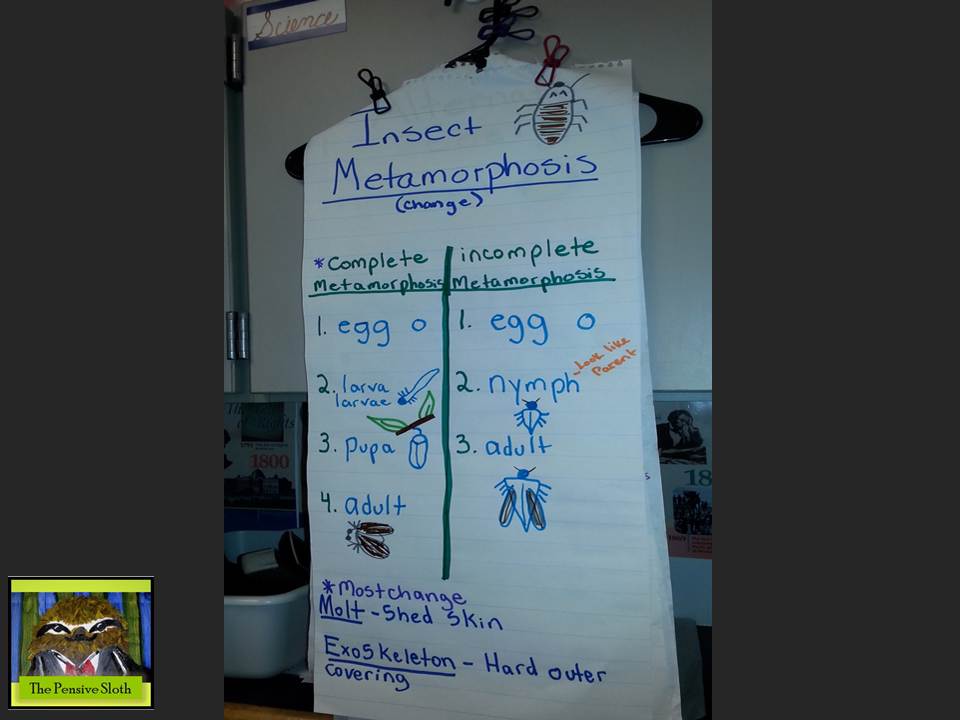 Science
Insect
Metamorphosis
(change)
*Complete
Metamorphosis
1. egg
2. larva
larvae
3. pupa
4. adult
incomplete
Metamorphosis
1. egg
2. nymph
-Look like
Parent
3. adult
*Most change
Molt - Shed Skin
Exoskeleton - Hard outer
covering
1800
18
The Pensive Sloth